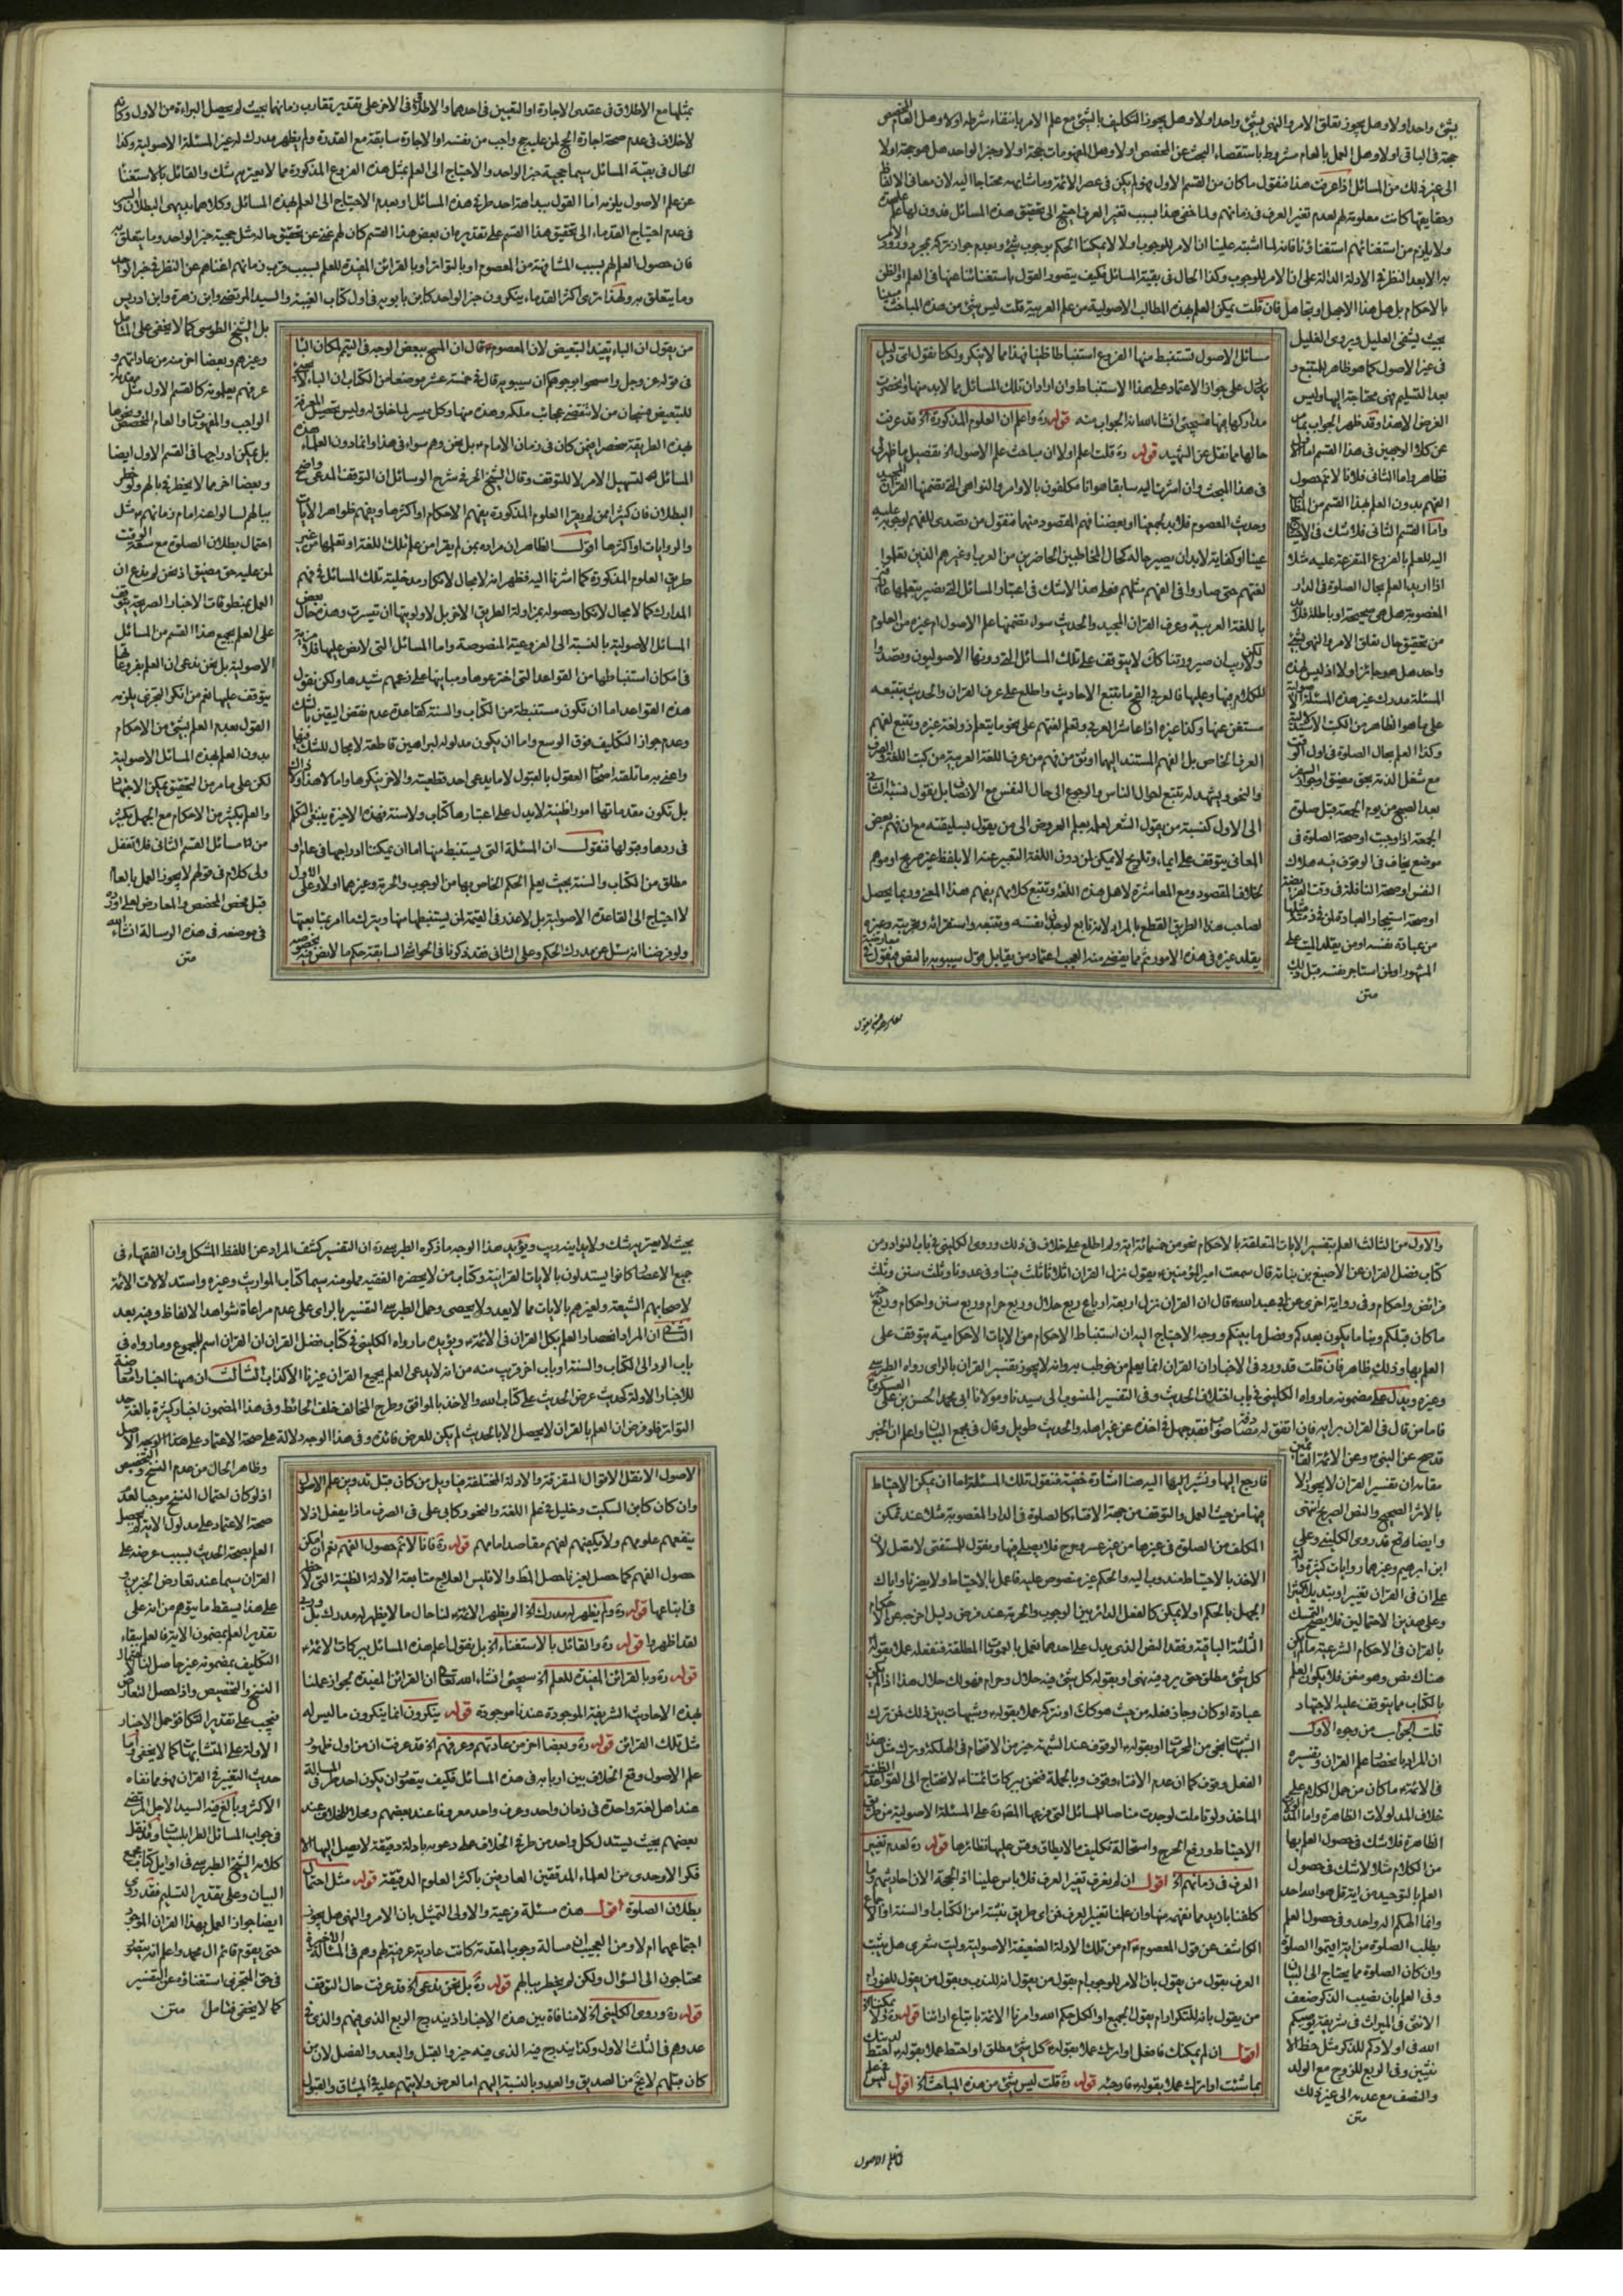 بشئ واحد اولا وهل يجوز تعلق الامر والنهى بشئ واحد اولا وهل يجوز التكليف بالشئ مع علم الامر بانتفاء شرطه اولا وهل العام المخصص
حجة فى الباقى اولا وهل العمل بالعام مشروط باستقصاء البحث عن المخصص اولا وهل المفهومات حجة اولا وخبر الواحد هل هو حجة اولا
الى غير ذلك من المسائل اذا عرفت هذا فنقول ما كان من القسم الاول فهو لم يكن فى عصر الائمة وما شابهه محتاجا اليه لان معانى الالفاظ
وحقايقها كانت معلومة لهم لعدم تغير العرف فى زمانهم ولما خفى هذا بسبب تغير العرف احتيج الى تحقيق هذه المسائل فدون لها علم
ولا يلزم من استغنائهم استغنائنا فانه لما اشتبه علينا ان الامر للوجوب اولا لا يمكننا الحكم بوجوب شئ وبعدم جواز تركه بمجرد ورود الامر
به الا بعد النظر فى الادلة الدالة على ان الامر للوجوب وكذا الحال فى بقية المسائل فكيف يتصور القول باستغنائنا عنها فى العلم او الظن
بالاحكام بل هل هذا الا جهل او تجاهل فان قلت يمكن العلم بهذه المطالب الاصولية من علم العربية قلت ليس شئ من هذه المباحث مبينا
بحيث يشفى العليل ويروى الغليل
فى غير الاصول كما هو ظاهر للمتتبع و
بعد التسليم فهى محتاجة اليها وليس
الغرض الا هذا وقد ظهر الجواب بما مر
عن كلا الوجهين فى هذا القسم اما الاول
فظاهر واما الثانى فلانا لانم حصول
الفهم بدون العلم بهذا القسم من المطالب
واما القسم الثانى فلا شك فى الاحتياج
اليه للعلم بالفروع المتفرعة عليه مثلا
اذا اريد العلم بحال الصلوة فى الدار
المغصوبة هل هى صحيحة او باطلة فلا بد
من تحقيق حال تعلق الامر والنهى بشئ
واحد هل هو جائز اولا اذ ليس لهذه
المسئلة مدرك غير هذه المسئلة الاصولية
على ما هو الظاهر من الكتب الاستدلالية
وكذا العلم بحال الصلوة فى اول الوقت
مع شغل الذمة بحق مضيق او جواز السفر
بعد الصبح من يوم الجمعة قبل صلوة
الجمعة اذا وجبت او صحة الصلوة فى
موضع يخاف فى الوقوف فيه هلاك
النفس او صحة النافلة فى وقت الفريضة
او صحة استيجار العبادة لمن فى ذمته مثلها
من عبادة نفسه او من يقلد الميت على
المشهور او لمن استاجر نفسه قبل ذلك
متن
مسائل الاصول تستنبط منها الفروع استنباطا ظنيا فهذا مما لا ينكر ولكنا نقول اى دليل
يدل على جواز الاعتماد على هذا الاستنباط وان اراد ان تلك المسائل مما لا بد منها وانحصرت
مداركها فيها فسيجيئ انشاء الله الجواب منه قوله ره واعلم ان العلوم المذكورة اه قد عرفت
حالها مما نقل عن الشهيد قوله ره قلت اعلم اولا ان مباحث علم الاصول اه تفصيل ما ظهر لى
فى هذا المبحث وان اشرنا اليه سابقا هو انا مكلفون بالاوامر والنواهى التى تضمنها القران المجيد
وحديث المعصوم فلا بد لجميعنا او بعضنا فهم المقصود منهما فنقول من تصدى للفهم لوجوبه عليه
عينا او كفاية لابد ان يصير حاله كحال المخاطبين الحاضرين من العرب او غيرهم الذين تعلموا
لغتهم حتى صاروا فى الفهم مثلهم فعلى هذا لا شك فى اعتبار المسائل التى نصير بتعلمها عالمين
باللغة العربية وعرف القران المجيد والحديث سواء تضمنها علم الاصول ام غيره من العلوم
ولا ريب ان صيرورتنا كك لا يتوقف على تلك المسائل التى دونها الاصوليون وتصدوا
للكلام فيها وعليها فالعربى القح ما تتبع الاحاديث واطلع على عرف القران والحديث بتتبعه
مستغن عنها وكذا غيره اذا عاشر العرب وتعلم لغتهم على نحو ما يتعلم ذو لغة غيره وتتبع لفهم
العرف الخاص بل الفهم المستند اليها اوثق من فهم من عرف اللغة العربية من كتب اللغة والصرف
والنحو ويشهد له تتبع احوال الناس والرجوع الى حال النفس مع الانصاف بل نقول نسبة الثانى
الى الاول كنسبة من يقول الشعر لعلمه بعلم العروض الى من يقول بسليقته مع ان فهم بعض
المعانى يتوقف على ايماء وتلويح لا يمكن لمن دون اللغة التعبير عنه الا بلفظ غير صريح او موهم
لخلاف المقصود ومع المعاشرة لاهل هذه اللغة وتتبع كلامهم يفهم هذا المعنى وربما يحصل
لصاحب هذا الطريق القطع بالمراد لانه تابع لوجدان نفسه وتتبعه واستقرائه وتجربته وغيره
يقلد غيره فى هذه الامور ثم مما يقضى منه العجب اعتماد من يقابل قول سيبويه بالنص فيقول فى
بمثلها مع الاطلاق فى عقدى الاجارة او التعيين فى احدهما والاطلاق فى الاخر على تقدير تقارب زمانهما بحيث لم يحصل البراءة من الاول وكانه
لا خلاف فى عدم صحة اجارة الحج لمن عليه حج واجب من نفسه او الاجارة سابقة مع القدرة ولم يظهر مدرك له غير المسئلة الاصولية وكذا
الحال فى بقية المسائل سيما حجية خبر الواحد والاحتياج الى العلم بمثل هذه الفروع المذكورة مما لا يعتريه شك والقائل بالاستغناء
عن علم الاصول يلزمه اما القول ببداهة احد طرفى هذه المسائل او بعدم الاحتياج الى العلم بهذه المسائل وكلاهما بديهى البطلان والسر
فى عدم احتياج القدماء الى تحقيق هذا القسم على تقديره ان بعض هذا القسم كان لهم غنى عن تحقيق حاله مثل حجية خبر الواحد وما يتعلق به
فان حصول العلم لهم بسبب المشافهة من المعصوم او بالتواتر او بالقرائن المفيدة للعلم بسبب قرب زمانهم اغناهم عن النظر فى خبر الواحد
وما يتعلق به ولهذا ترى اكثر القدماء ينكرون خبر الواحد كابن بابويه فى اول كتاب الغيبة والسيد المرتضى وابن زهرة وابن ادريس
بل الشيخ الطوسى كما لا يخفى على المتأمل
وغيرهم وبعضا اخر منه من عاداتهم و
عرفهم يعلمونه كالقسم الاول مثل مقدمة
الواجب والمفهومات والعام المخصص ونحوها
بل يمكن ادراجها فى القسم الاول ايضا
وبعضا اخر مما لا يخطر فى بالهم ولو خطر
ببالهم لسالوا عنه امام زمانهم مثل
احتمال بطلان الصلوة مع سعة الوقت
لمن عليه حق مضيق اذ نحن لم ندع ان
العمل بمنطوقات الاخبار الصريحة يتوقف
على العلم بجميع هذا القسم من المسائل
الاصولية بل نحن ندعى ان العلم بفروعها
يتوقف عليها نعم من انكر التجزى يلزمه
القول بعدم العلم بشئ من الاحكام
بدون العلم بهذه المسائل الاصولية
لكن على ما مر من التحقيق يمكن الاجتهاد
والعلم بكثير من الاحكام مع الجهل بكثير
من مسائل القسم الثانى فلا تغفل
ولى كلام فى قولهم لا يجوز العمل بالعام
قبل فحص المخصص والمعارض لعلى اورده
فى موضعه فى هذه الرسالة انشاء الله
متن
من يقول ان الباء تفيد التبعيض لان المعصوم قال ان المسح ببعض الوجه فى التيمم لمكان الباء
فى قوله عز وجل وامسحوا بوجوهكم ان سيبويه قال فى خمسة عشر موضعا من الكتاب ان الباء لا تجيئ
للتبعيض فسبحان من لا تنقضى عجائب ملكه وهذه منها وكل ميسر لما خلق له وليس تحصيل المعرفة
بهذه الطريقة منحصرا فيمن كان فى زمان الامام بل نحن وهم سواء فى هذا وانما دون العلماء هذه
المسائل لتسهيل الامر لا للتوقف وقال الشيخ الحر فى شرح الوسائل ان التوقف المدعى واضح
البطلان فان كثيرا ممن لم يقرا العلوم المذكورة يفهم الاحكام او اكثرها ويفهم ظواهر الايات
والروايات او اكثرها اقول الظاهر ان مراده بمن لم يقرا من علم تلك اللغة او تعلمها من غير
طريق العلوم المذكورة كما اشرنا اليه فظهر انه لا مجال لانكار مدخلية تلك المسائل فى فهم
المدارك كما لا مجال لانكار حصوله بمزاولة الطريق الاخر بل لاولويتها ان تيسرت وهذه حال بعض
المسائل الاصولية بالنسبة الى الفروعية المنصوصة واما المسائل التى لا نص عليها فلا
فى امكان استنباطها من القواعد التى اخترعوها ومبانيها على زعمهم شيدوها ولكن نقول
هذه القواعد اما ان تكون مستنبطة من الكتاب والسنة كقاعدة عدم نقض اليقين بالشك
وعدم جواز التكليف فوق الوسع واما ان يكون مدلوله لبراهين قاطعة لا مجال للشك فيها
واعنى به ما تلقته اصحاب العقول بالقبول لا ما يدعى احد قطعيته والاخر ينكرها واما لا هذا ولا ذاك
بل تكون مقدماتها امورا ظنية لا يدل على اعتبارها كتاب ولا سنة فهذه الاخيرة ينبغى التكلم
فى ردها وقبولها فنقول ان المسئلة التى يستنبط منها اما ان يمكننا ادراجها فى عام او
مطلق من الكتاب والسنة بحيث يعلم الحكم الخاص بها من الوجوب والحرمة وغيرهما اولا وعلى الاول
لا احتياج الى القاعدة الاصولية بل لا عذر فى القيمة لمن يستنبطها منها ويترك ما امر بمتابعتها
ولو فرضنا انه سئل عن مدرك الحكم وعلى الثانى فقد ذكرنا فى الحواشى السابقة حكم ما لا نص فيه بخصوصه
والاول من الثالث العلم بتفسير الايات المتعلقة بالاحكام نحو من خمسمائة اية ولم اطلع على خلاف فى ذلك وروى الكلينى فى باب النوادر من
كتاب فضل القران عن الاصبغ بن نباتة قال سمعت امير المؤمنين يقول نزل القران اثلاثا ثلث فينا وفى عدونا وثلث سنن وثلث
فرائض واحكام وفى رواية اخرى عن ابى عبد الله قال ان القران نزل اربعة ارباع ربع حلال وربع حرام وربع سنن واحكام وربع خبر
ما كان قبلكم ونبا ما يكون بعدكم وفصل ما بينكم ووجه الاحتياج اليه ان استنباط الاحكام من الايات الاحكامية يتوقف على
العلم بها وذلك ظاهر فان قلت قد ورد فى الاخبار ان القران انما يعلم من خوطب به وانه لا يجوز تفسير القران بالراى رواه الطبرسى
وغيره ويدل على مضمونه ما رواه الكلينى فى باب اختلاف الحديث وفى التفسير المنسوب الى سيدنا ومولانا ابى محمد الحسن بن على العسكرى
فاما من قال فى القران برايه فان اتفق له مصادفة صواب فقد جهل فى اخذه عن غير اهله والحديث طويل وقال فى مجمع البيان واعلم ان الخبر
قد صح عن النبى وعن الائمة القائمين
مقامه ان تفسير القران لا يجوز الا
بالاثر الصحيح والنص الصريح انتهى
وايضا فقد روى الكلينى وعلى
ابن ابراهيم وغيرهما روايات كثيرة دالة
على ان فى القران تغييرا وتبديلا كثيرا
وعلى هذين الاحتمالين فلا يصح التمسك
بالقران فى الاحكام الشرعية ما لم يكن
هناك نص وهو مغن فلا يكون العلم
بالكتاب مما يتوقف عليه الاجتهاد
قلت الجواب من وجوه الاول
ان المراد بانحصار علم القران وتفسيره
فى الائمة ما كان من حمل الكلام على
خلاف المدلولات الظاهرة واما المدلولات
الظاهرة فلا شك فى حصول العلم بها
من الكلام مثلا لا شك فى حصول
العلم بالتوحيد من اية قل هو الله احد
وانما الهكم اله واحد وفى حصول العلم
بطلب الصلوة من اية اقيموا الصلوة
وان كان الصلوة مما يحتاج الى البيان
وفى العلم بان نصيب الذكر ضعف
الانثى فى الميراث فى شريعته يوصيكم
الله فى اولادكم للذكر مثل حظ الا
نثيين وفى الربع للزوج مع الولد
والنصف مع عدمه الى غير ذلك
متن
فارجع اليها ونشير اليها اليه هنا اشارة خفية فنقول تلك المسئلة اما ان يمكن الاحتياط
فيها من حيث العمل والتوقف من جهة الافتاء كالصلوة فى الدار المغصوبة مثلا عند تمكن
المكلف من الصلوة فى غيرها من غير عسر وحرج فلا يصلى فيها ويقول للمستفتى لا تصل لان
الاخذ بالاحتياط مندوب اليه والحكم غير منصوص عليه فاعمل بالاحتياط ولا يضرنا واياك
الجهل بالحكم اولا يمكن كالفعل الدائر بين الوجوب والحرمة عند فرض دليل اخرجه عن الاحكام
الثلثة الباقية وفقد النص الذى يدل على احدهما فنعمل بالعمومات المطلقة فنفعله عملا بقوله
كل شئ مطلق حتى يرد فيه نهى او بقوله كل شئ فيه حلال وحرام فهو لك حلال هذا اذا لم يكن
عبادة او كان وجاز فعله من حيث هو كك او نتركه عملا بقوله وشبهات بين ذلك فمن ترك
الشبهات نجى من المحرمات او بقوله الوقوف عند الشبهة خير من الاقتحام فى الهلكة وترك مثل هذا
الفعل وقوف كما ان عدم الافتاء وقوف وبالجملة فنحن ببركات ائمتنا لا نحتاج الى القواعد الظنية
الماخذ ولو تاملت لوجدت مناصا للمسائل التى فرعها المتفردة على المسئلة الاصولية من طريق
الاحتياط ورفع الحرج واستحالة تكليف ما لا يطاق وقس عليها نظائرها قوله ره لعدم تغير
العرف فى زمانهم اه اقول ان لم يعرف تغير العرف فلا باس علينا اذ الحجة الان احاديثهم وما
كلفنا بازيد مما نفهم منها وان علمنا تغيير العرف فمن اى طريق نثبته امن الكتاب او السنة او الاجماع
الكاشف عن قول المعصوم ام من تلك الادلة الضعيفة الاصولية وليت شعرى هل يثبت
العرف بقول من يقول بان الامر للوجوب ام بقول من يقول انه للندب وبقول من يقول للفور او
من يقول بانه للتكرار ام بقول الجميع او الكل حكم الله وامرنا الائمة باتباع ارائنا قوله ره ولا يمكننا اه
اقول ان لم يمكنك فافعل او اترك عملا بقوله كل شئ مطلق او احتط عملا بقوله احتط لدينك
بما شئت او اترك عملا بقوله فارجئه قوله ره قلت ليس شئ من هذه المباحث اه اقول ليس فى علم
فى علم الاصول
بحيث لا يعتريه شك ولا يدانيه ريب ويؤيد هذا الوجه ما ذكره الطبرسى ره ان التفسير كشف المراد عن اللفظ المشكل وان الفقهاء فى
جميع الاعصار كانوا يستدلون بالايات القرانية وكتاب من لا يحضره الفقيه مملو منه سيما كتاب المواريث وغيره واستدلالات الائمة
لاصحابهم الشيعة ولغيرهم بالايات مما لا يعد ولا يحصى وحمل الطبرسى التفسير بالراى على عدم مراعاة شواهد الالفاظ وفيه بعد
الثانى ان المراد انحصار العلم بكل القران فى الائمة ويؤيده ما رواه الكلينى فى كتاب فضل القران ان القران اسم للمجموع وما رواه فى
باب الرد الى الكتاب والسنة وباب اخر قريب منه من انه لا يدعى العلم بجميع القران غيرنا الا كذاب الثالث ان ههنا اخبارا معارضة
للاخبار الاولة كحديث عرض الحديث على كتاب الله والاخذ بالموافق وطرح المخالف خلف الحائط وفى هذا المضمون اخبار كثيرة بالغة حد
التواتر فلو فرض ان العلم بالقران لا يحصل الا بالحديث لم يكن للعرض فائدة وفى هذا الوجه دلالة على صحة الاعتماد على
وظاهر الحال من عدم النسخ والتخصيص
اذ لو كان احتمال النسخ موجبا لعدم
صحة الاعتماد على مدلول الاية لم يحصل
العلم بصحة الحديث بسبب عرضه على
القران سيما عند تعارض الخبرين و
على هذا يسقط ما يتوهم من انه على
تقدير العلم بمضمون الاية فالعلم ببقاء
التكليف بمضمونه غير حاصل لنا لاحتمال
النسخ والتخصيص واذا حصل التعارض
فيجب على تقدير التكافؤ حمل الاخبار
الاولة على المتشابهات كما لا يخفى واما
حديث التغيير فى القران فهو مما نفاه
الاكثر وبالغ فيه السيد الاجل المرتضى
فى جواب المسائل الطرابلسيات وقد نقل
كلامه الشيخ الطبرسى فى اوائل كتاب مجمع
البيان وعلى تقدير التسليم فقد روى
ايضا جواز العمل بهذا القران الموجود
حتى يقوم قائم ال محمد واعلم انه يتصور
فى حق المتجزى استغناؤه عن التفسير
كما لا يخفى فتامل متن
الاصول الا نقل الاقوال المتفرقة والادلة المختلفة فيا ويل من كان قبل تدوين علم الاصول
وان كان كابن السكيت وخليل فى علم اللغة والنحو وكابى على فى الصرف ماذا يفعل اذ لا
ينفعهم علومهم ولا يكفيهم لفهم مقاصد امامهم قوله ره فانا لانم حصول الفهم نعم ان امكن
حصول الفهم كما حصل لغيرنا حصل الحظ والا فليس العلاج متابعة الادلة الظنية التى لا حظ
فى اتباعها قوله ره ولم يظهر له مدرك اه الم يظهر الائمة لنا حال ما لا يظهر له مدرك بل وربى
لقد اظهروا قوله ره والقائل بالاستغناء اه بل يقول اعلم هذه المسائل ببركات الائمة
قوله ره وبالقرائن المفيدة للعلم اه سيجئ انشاء الله تعالى ان القرائن المفيدة لجواز عملنا
بهذه الاحاديث الشريفة الموجودة عندنا موجودة قوله ينكرون انما ينكرون ما ليس له
مثل تلك القرائن قوله ره وبعضا اخر من عادتهم وعرفهم اه قد عرفت ان من اول ظهور
علم الاصول وقع الخلاف بين اربابه فى هذه المسائل فكيف يتصور ان يكون احد طرفى المسالة
عند اهل لغة واحدة فى زمان واحد وعرف واحد معروفا عند بعضهم ومحلا للخلاف عند
بعضهم بحيث يستدل كل واحد من طرفى الخلاف على دعويه بادلة دقيقة لا يصل اليها الا
فكر الاوحدى من العلماء المدققين العارفين باكثر العلوم الدقيقة قوله مثل احتمال
بطلان الصلوة اقول هذه مسئلة فرعية والاولى التمثيل بان الامر والنهى هل يجوز
اجتماعهما ام لا ومن العجب ان مسالة وجوب المقدمة كانت عادية عرفية لهم وهم فى المسالة الاخرى
محتاجون الى السؤال ولكن لم يخطر ببالهم قوله ره بل نحن ندعى اه قد عرفت حال التوقف
قوله ره وروى الكلينى اه لا منافاة بين هذه الاخبار اذ يندرج الربع الذى فيهم والذى فى
عدوهم فى الثلث الاول وكذا يندرج فيه الذى فيه خبر والقبل والبعد والفصل لان من
كان قبلهم لا يخ من الصديق والعدو بالنسبة اليهم اما لعرض ولايتهم عليه فى الميثاق والقبول